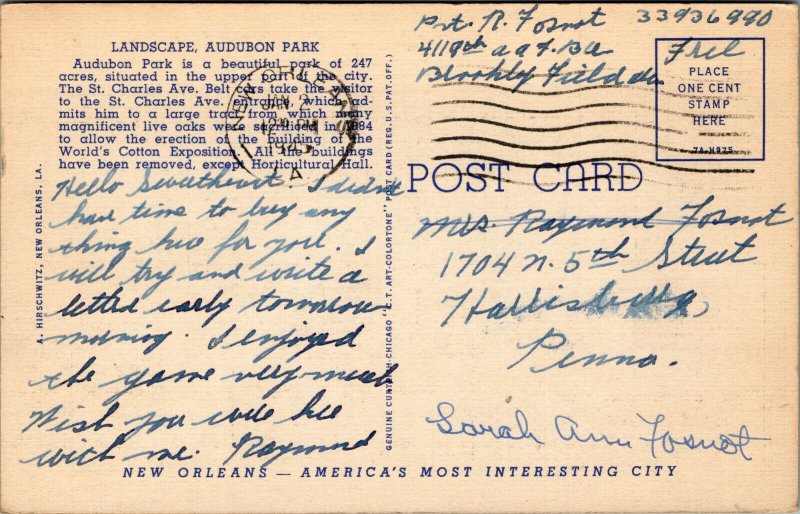 LANDSCAPE, AUDUBON PARK
Audubon Park is a beautiful park of 247
acres, situated in the upper part of the city.
The St. Charles Ave. Belt cars take the visitor
to the St. Charles Ave. entrance, which ad-
mits him to a large tract from which many
magnificent live oaks were sacrificed in 1884
to allow the erection of the building of the
World's Cotton Exposition. All the buildings
have been removed, except Horticultural Hall.
Hello Sweetheart I didnt
have time to buy any
thing here for you. I
will try and write a
letter early tomorrow
morning. I enjoyed
the game very much
Wish you were here
with me. Raymond
A. HIRSCHWITZ, NEW ORLEANS, LA.
GENUINE CURTEICH-CHICAGO "C.T. ART-COLORTONE" POST CARD (REG. U.S. PAT. OFF.)
Pvt. R. Fosnot 33936990
4119th
Brookly Field
Free
NEW ORLEANS
JAN 2
PM
PLACE
ONE CENT
STAMP
HERE
7A-H975
POST CARD
Mrs. Raymond Fosnot
1704 N. 5th Street
Harrisburg,
Penna.
Sarah Ann Fosnot
NEW ORLEANS — AMERICA'S MOST INTERESTING CITY